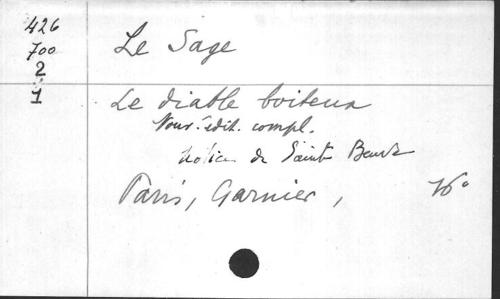 426
700
2
1
Le Sage
Le diable boiteux
Nouv. édit. compl.
Notice de Sainte Beuve
Paris, Garnier,
16°